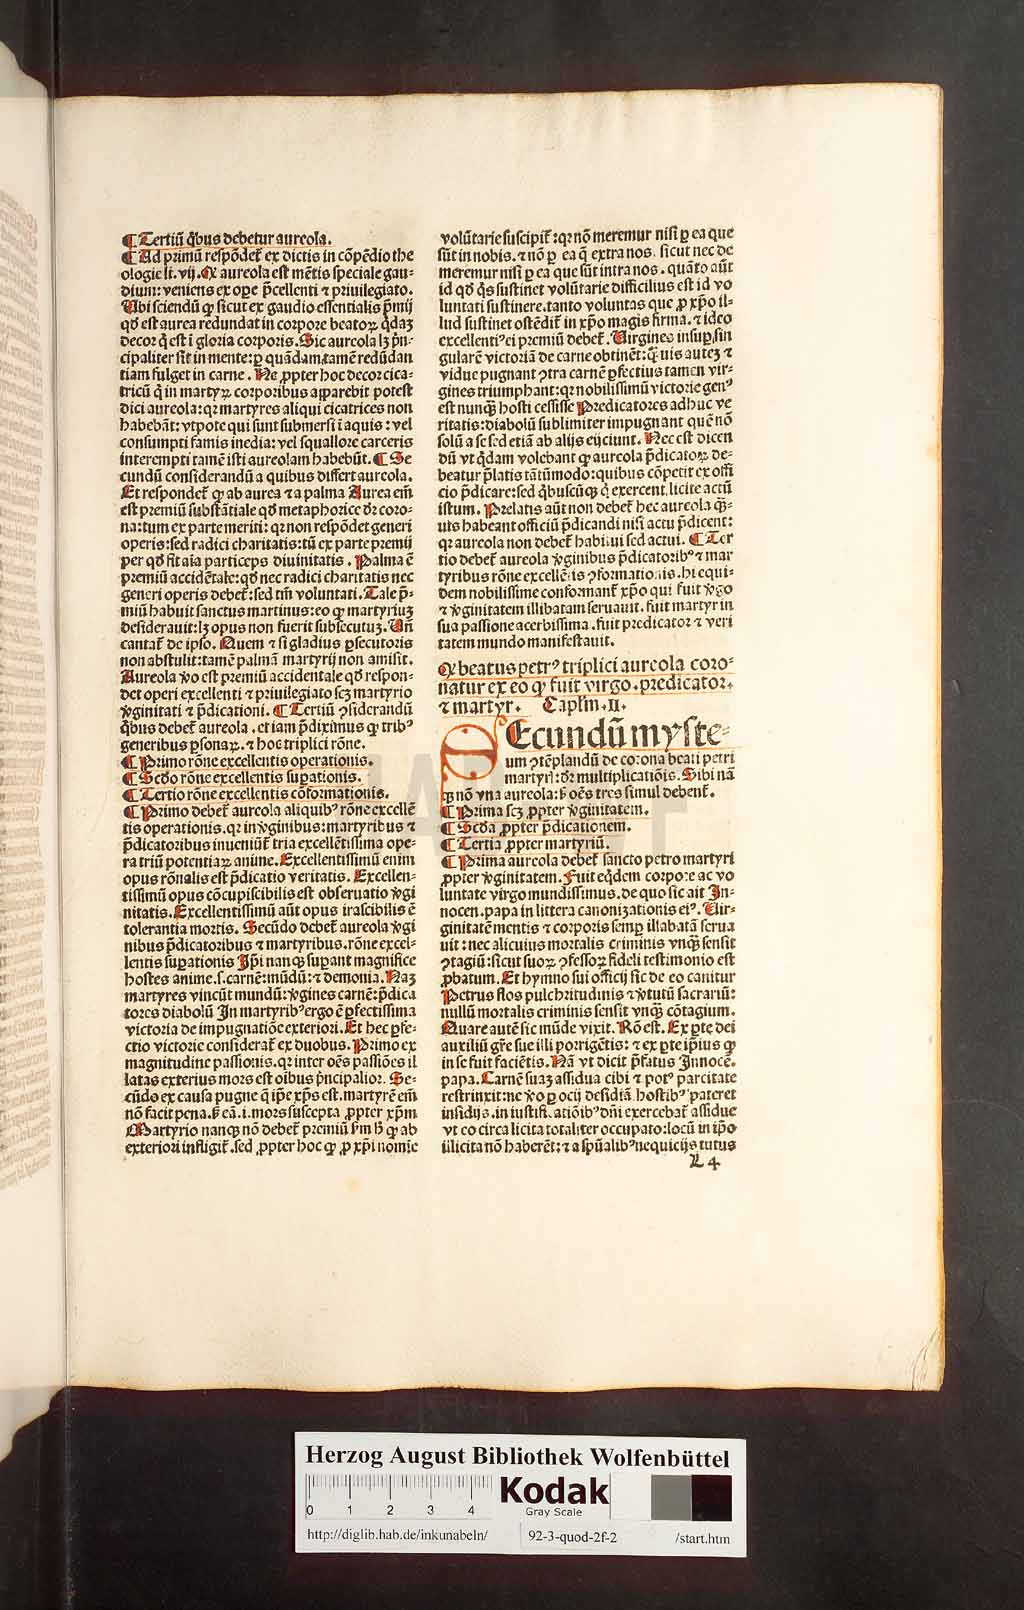 ¶ Tertiū q̇bus debetur aureola.
¶ Ad primū respōdet̄ ex dictis in cōpēdio the
ologie li. vij. Ꝙ aureola est mētis speciale gau⸗
dium: veniens ex oꝑe p̄cellenti ⁊ priuilegiato.
Ubi sciendū ꝙ sicut ex gaudio essentialis p̄mij
qđ est aurea redundat in corpore beatoꝝ q̇daꝫ
decor q̇ est ī gloria corporis. Sic aureola lꝫ pͥn⸗
cipaliter sit in mente: ꝑ quādam tamē redūdan
tiam fulget in carne. Ne ꝓpter hoc decor cica⸗
tricū q̇ in martyꝝ corporibus apparebit potest
dici aureola: qꝛ martyres aliqui cicatrices non
habebāt: vtpote qui sunt submersi ī aquis: vel
consumpti famis inedia: vel squallore carceris
interempti tamē isti aureolam habebūt. ¶ Se
cundū considerandū a quibus differt aureola.
Et respondet̄ ꝙ ab aurea ⁊ a palma Aurea em̄
est premiū substātiale qđ metaphorice dr̄ coro⸗
na: tum ex parte meriti: qꝛ non respōdet generi
operis: sed radici charitatis: tū ex parte premij
per qđ fit aīa particeps diuinitatis. Palma ē
premiū accidētale: qđ nec radici charitatis nec
generi operis debet̄: sed tm̄ voluntati. Tale p̄⸗
miū habuit sanctus martinus: eo ꝙ martyriuꝫ
desiderauit: lꝫ opus non fuerit subsecutuꝫ. Uñ
cantat̄ de ipso. Quem ⁊ si gladius ꝑsecutoris
non abstulit: tamē palmā martyrij non amisit.
Aureola ꝟo est premiū accidentale qđ respon⸗
det operi excellenti ⁊ priuilegiato scꝫ martyrio
ꝟginitati ⁊ p̄dicationi. ¶ Tertiū ꝯsiderandū
q̇bus debet̄ aureola. et iam p̄diximus ꝙ tribꝰ
generibus ꝑsonaꝝ. ⁊ hoc triplici rōne.
¶ Primo rōne excellentis operationis.
¶ Scđo rōne excellentis suꝑationis.
¶ Tertio rōne excellentis cōformationis.
¶ Primo debet̄ aureola aliquibꝰ rōne excellē
tis operationis. qꝛ in ꝟginibus: martyribus ⁊
p̄dicatoribus inueniūt̄ tria excellētissima ope⸗
ra triū potentiaꝝ anime. Excellentissimū enim
opus rōnalis est p̄dicatio veritatis. Excellen⸗
tissimū opus cōcupiscibilis est obseruatio ꝟgi
nitatis. Excellentissimū aūt opus irascibilis ē
tolerantia mortis. Secūdo debet̄ aureola ꝟgi
nibus p̄dicatoribus ⁊ martyribus. rōne excel⸗
lentis suꝑationis Ip̄i nanqꝫ suꝑant magnifice
hostes anime. s. carnē: mūdū: ⁊ demonia. Naꝫ
martyres vincūt mundū: ꝟgines carnē: p̄dica
tores diabolū In martyribꝰ ergo ē ꝑfectissima
victoria de impugnatiōe exteriori. Et hec ꝑfe⸗
ctio victorie considerat̄ ex duobus. Primo ex
magnitudine passionis. qꝛ inter oēs passiōes il
latas exterius mors est oībus pͥncipalior. Se⸗
cūdo ex causa pugne q̄ ip̄e xp̄s est. martyrē em̄
nō facit pena. sꝫ cā. i. mors suscepta ꝓpter xp̄m
Martyrio nanqꝫ nō debet̄ premiū ẜm hͦ ꝙ ab
exteriori infligit̄. sed ꝓpter hoc ꝙ ꝓ xp̄i nomīe
volūtarie suscipit̄: qꝛ nō meremur nisi ꝑ ea que
sūt in nobis. ⁊ nō ꝑ ea q̄ extra nos. sicut nec de
meremur nisi ꝑ ea que sūt intra nos. quāto aūt
id qđ q̇s sustinet volūtarie difficilius est id vo
luntati sustinere. tanto voluntas que ꝓ xp̄o il⸗
lud sustinet ostēdit̄ in xp̄o magis firma. ⁊ ideo
excellentiꝰ ei premiū debet̄. Uirgines insuꝑ sin
gularē victoriā de carne obtinēt: q̄uis auteꝫ ⁊
vidue pugnant ꝯtra carnē ꝑfectius tamen vir⸗
gines triumphant: qꝛ nobilissimū victorie genꝰ
est nunqꝫ hosti cessisse Predicatores adhuc ve
ritatis: diabolū sublimiter impugnant quē nō
solū a se sed etiā ab alijs eijciunt. Nec est dicen
dū vt q̇dam volebant ꝙ aureola p̄dicatoꝝ de⸗
beatur p̄latis tātūmodo: quibus cōpetit ex offi
cio p̄dicare: sed q̇buscūqꝫ q̇ exercent. licite actū
istum. Prelatis aūt non debet̄ hec aureola q̄ꝫ⸗
uis habeant officiū p̄dicandi nisi actu p̄dicent:
qꝛ aureola non debet̄ habitui sed actui. ¶ Ter
tio debet̄ aureola ꝟginibus p̄dicatoribꝰ ⁊ mar
tyribus rōne excellētis ꝯformationis. hi equi⸗
dem nobilissime conformant̄ xp̄o qui fuit ꝟgo
⁊ ꝟginitatem illibatam seruauit. fuit martyr in
sua passione acerbissima. fuit predicator ⁊ veri
tatem mundo manifestauit.
Ꝙ beatus petrꝰ triplici aureola coro⸗
natur ex eo ꝙ fuit virgo. predicator.
⁊ martyr. Caplm̄ .II.
SEcundū myste⸗
rium ꝯtēplandū de corona beati petri
martyr̄: dr̄ multiplicatiōis. Sibi nā
qꝫ nō vna aureola: sꝫ oēs tres simul debent̄.
¶ Prima scꝫ ꝓpter ꝟginitatem.
¶ Scđa ꝓpter p̄dicationem.
¶ Tertia ꝓpter martyriū.
¶ Prima aureola debet̄ sancto petro martyri
ꝓpter ꝟginitatem. Fuit eq̇dem corpore ac vo
luntate virgo mundissimus. de quo sic ait In⸗
nocen. papa in littera canonizationis eiꝰ. Uir⸗
ginitatē mentis ⁊ corporis semꝑ illabatā serua
uit: nec alicuius mortalis criminis vnqꝫ sensit
ꝯtagiū: sicut suoꝝ ꝯfessoꝝ fideli testimonio est
ꝓbatum. Et hymno sui officij sic de eo canitur
Petrus flos pulchritudinis ⁊ ꝟtutū sacrariū:
nullū mortalis criminis sensit vnqꝫ cōtagium.
Quare autē sic mūde vixit. Rō est. Ex ꝑte dei
auxiliū gr̄e sue illi porrigētis: ⁊ ex ꝑte ip̄ius ꝙ
in se fuit faciētis. Nā vt dicit p̄fatus Innocē.
papa. Carnē suaꝫ assidua cibi ⁊ potꝰ parcitate
restrinxit: ne ꝟo ꝑ ocij desidiā. hostibꝰ pateret
insidijs. in iustifi. atiōibꝰ dn̄i exercebat̄ assidue
vt eo circa licita totaliter occupato: locū in ip̄o
illicita nō haberēt: ⁊ a spūalibꝰ nequicijs tutus
L 4
Herzog August Bibliothek Wolfenbüttel
0 1 2 3 4
Kodak
Gray Scale
http://diglib.hab.de/inkunabeln/ 92-3-quod-2f-2 /start.htm